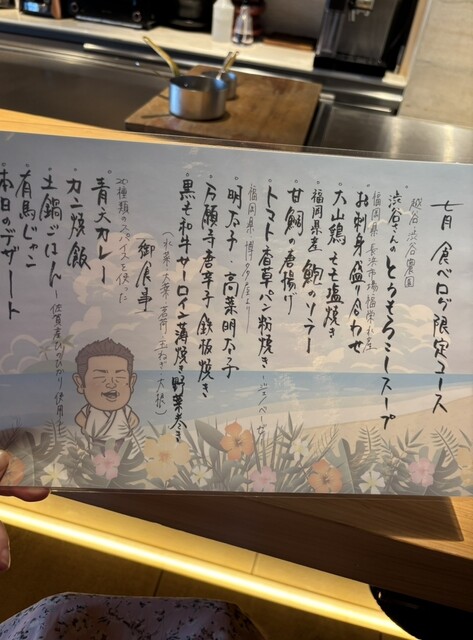 七月 食べログ限定コース
渋谷農園
渋谷さんのとうもろこしスープ
福岡県 長浜市場 福栄水産
お刺身盛り合わせ
大山鶏 モモ塩焼き
福岡県産 鮑のソテー
甘鯛の唐揚げ
トマト香草パン粉焼き
福岡県 博多
明太子・高菜明太子
万願寺唐辛子 鉄板焼き
黒毛和牛サーロイン薄焼き野菜巻き
(水菜・大葉・茗荷・玉ねぎ・大根)
御食事
20種類のスパイスを使った
青天カレー
カニ焼飯
土鍋ごはん 佐賀産 ひのひかり 使用
有馬じゃこ
本日のデザート